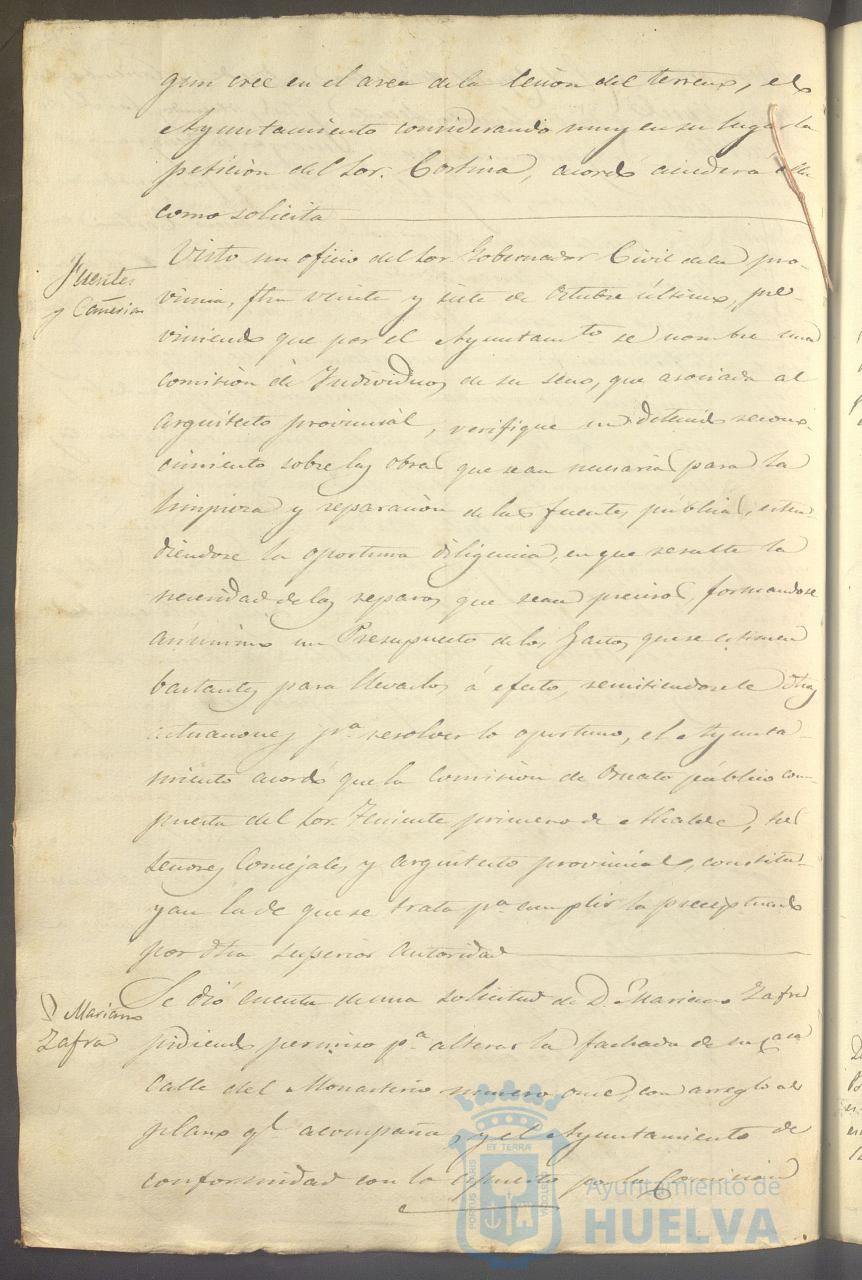 gun cree en el area de la Cesion del terreno, el
Ayuntamiento considerando muy en su lugar la
peticion del Sor. Cortina, acordó acceder á ella
como solicita
Fuentes
y Cañerias
Visto un oficio del Sor Gobernador Civil de la pro-
vincia, fha veinte y siete de Octubre último, pre-
viniendo que por el Ayuntamto se nombre una
comision de Individuos de su seno, que asociada al
arquitecto provincial, verifique un detenido recono-
cimiento sobre las obras que sean necesarias para la
limpieza y reparacion de las fuentes públicas, esten-
diendose la oportuna diligencia, en que resulte la
necesidad de los reparos que sean precisos, formandose
asimismo un Presupuesto de los gastos que se estimen
bastantes para llevarlos á efecto, remitiendosele dhas
actuaciones pa. resolver lo oportuno, el Ayunta-
miento acordó que la Comision de Ornato público com-
puesta del Sor. Teniente primero de Alcalde,
señores Concejales y arquitecto provincial, constitu-
yan la de que se trata pa. cumplir lo preceptuado
por dha superior autoridad
D Mariano
Zafra
Se dió cuenta de una solicitud de D. Mariano Zafra
pidiendo permiso pa. alterar la fachada de su casa
Calle del Monasterio numero once, con arreglo al
plano qe. acompaña, y el Ayuntamiento de
conformidad con lo espuesto por la Comision
PORTUS MARIS
ET TERRÆ
CUSTODIA
Ayuntamiento de
HUELVA